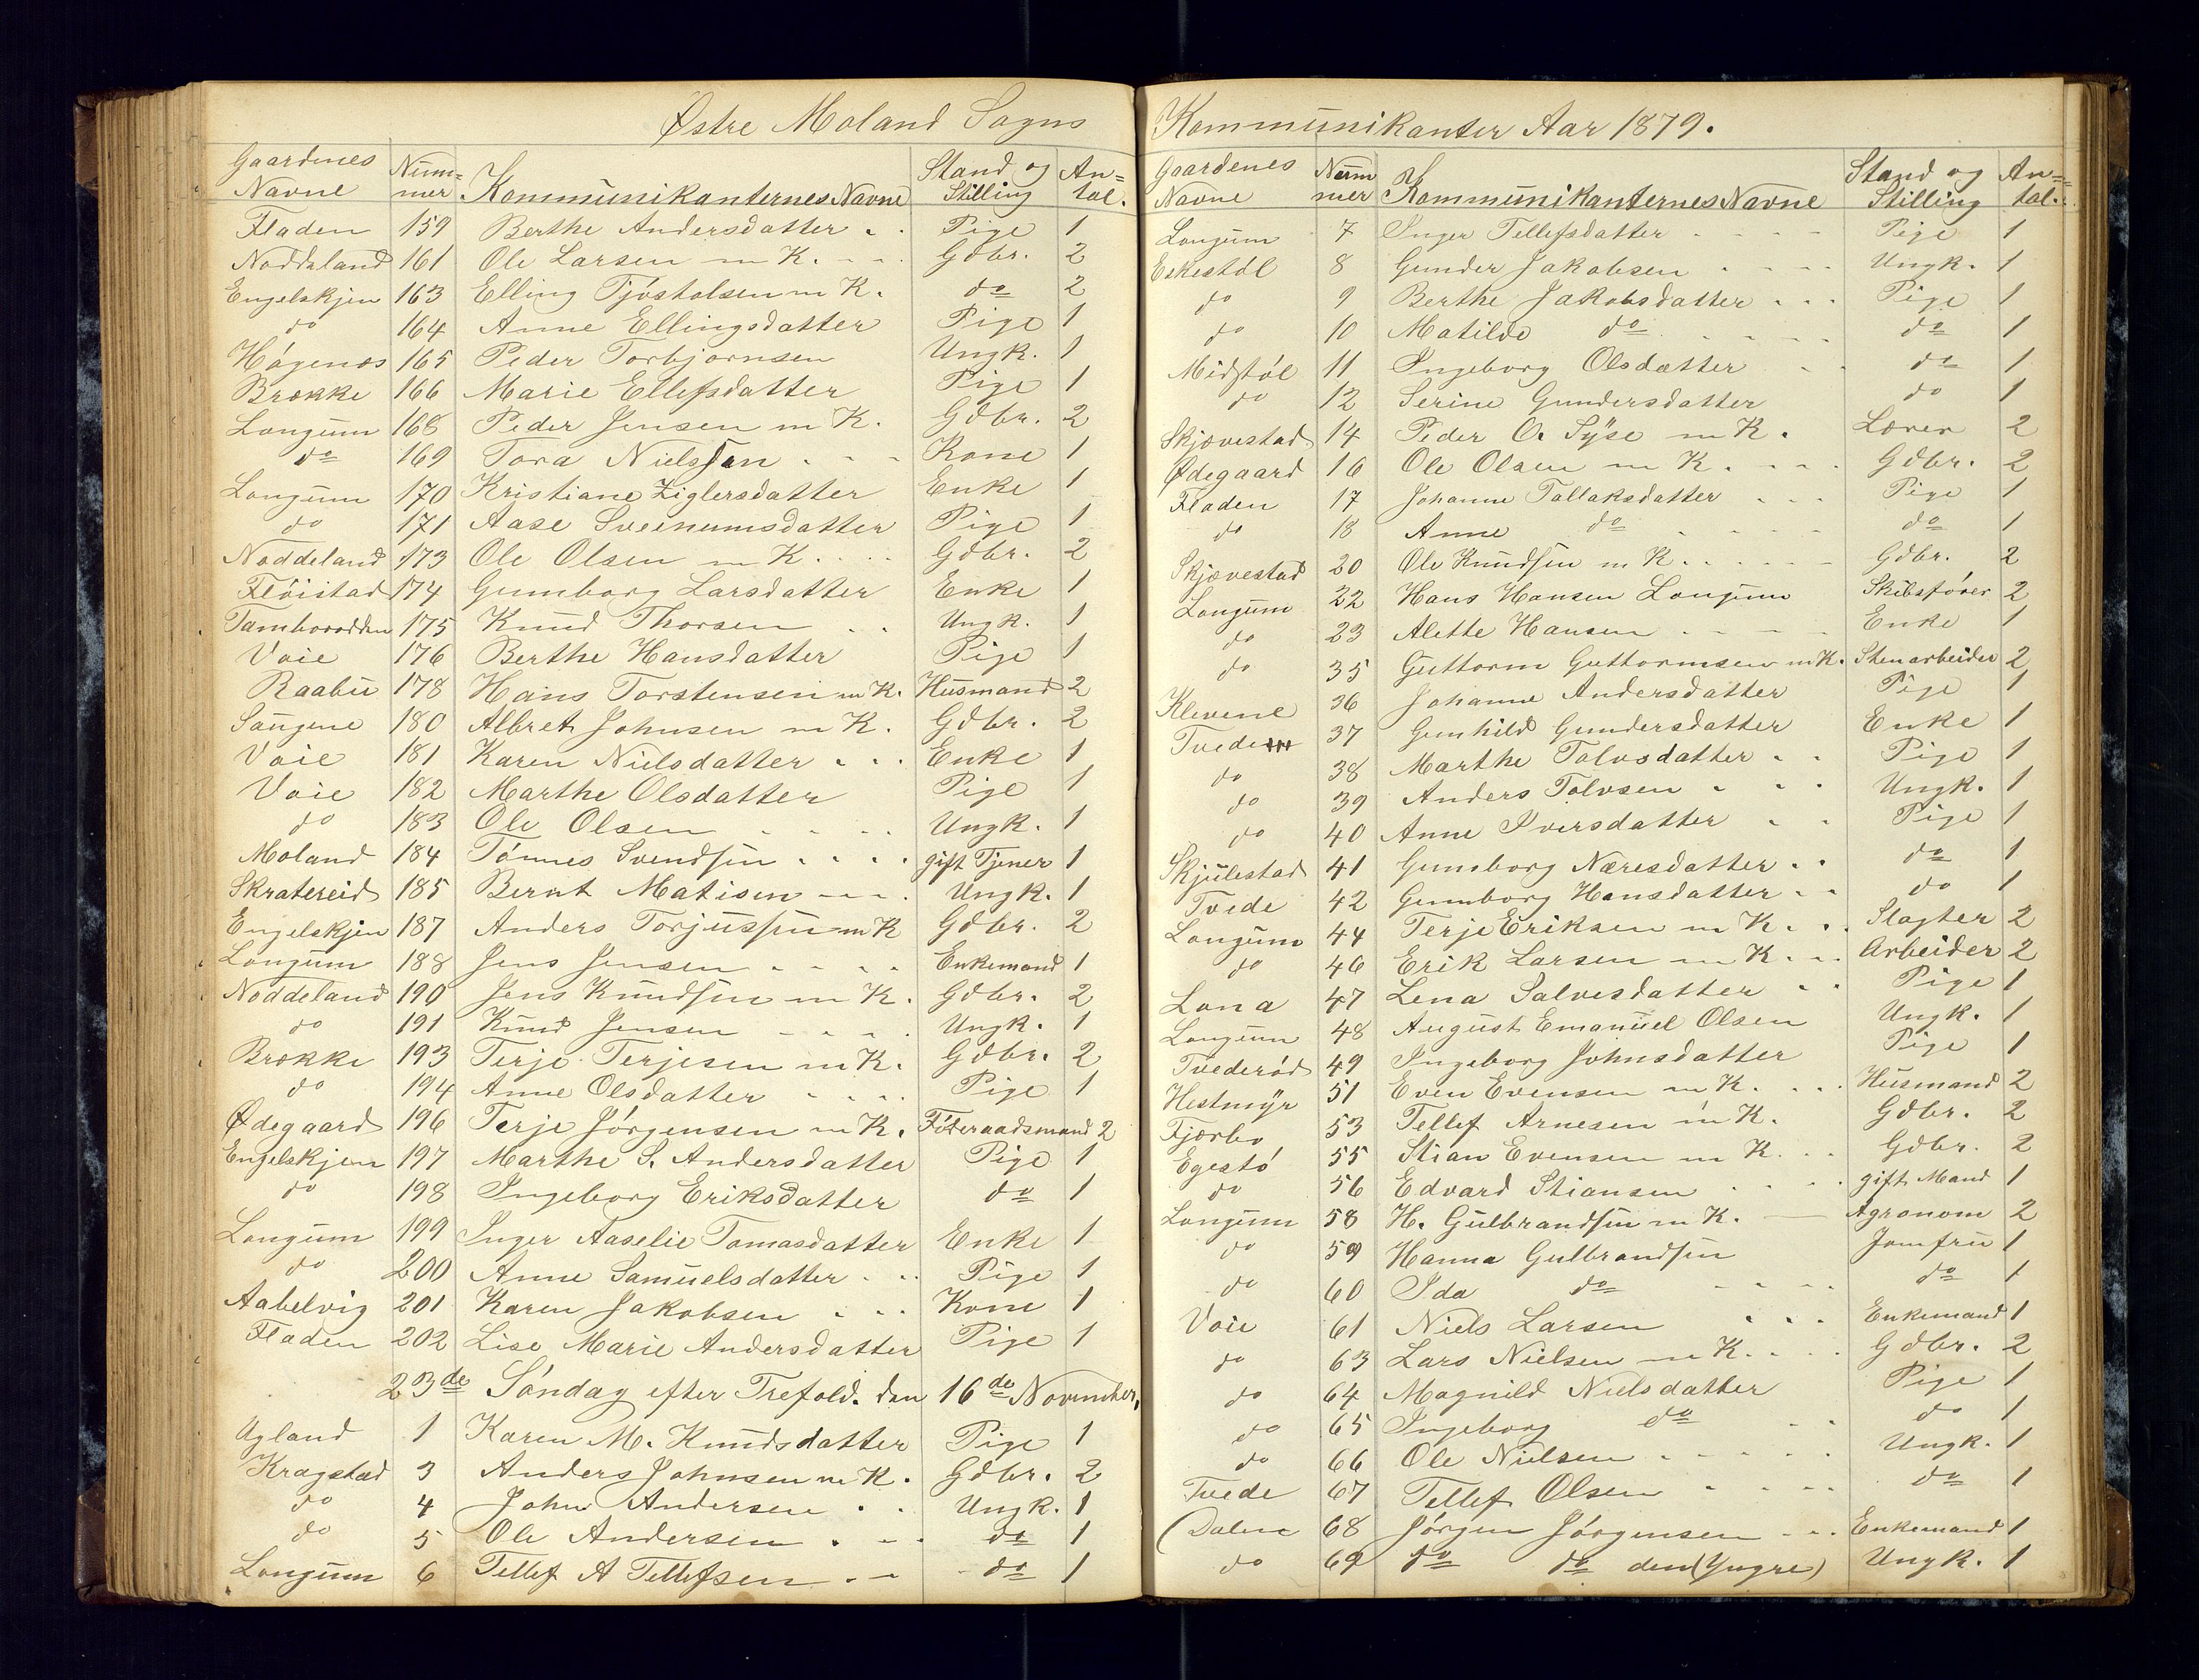 Østre Moland Sogns
Gaardenes Navne | Num=mer | Kommunikanternes Navne | Stand og Stilling | An=tal.
Fladen 159 Berthe Andersdatter Pige 1
Noddeland 161 Ole Larsen m K. Gdbr. 2
Engelskjen 163 Elling Tjóstolsen m K. do 2
do 164 Anne Ellingsdatter Pige 1
Hógenæs 165 Peder Torbjornsen Ungk. 1
Brække 166 Marie Ellefsdatter Pige 1
Longum 168 Peder Jensen m K. Gdbr. 2
do 169 Tora Nielssen Kone 1
Longum 170 Kristiane Ziglersdatter Enke 1
do 171 Aase Sveinumsdatter Pige 1
Noddeland 173 Ole Olsen m K. Gdbr. 2
Flóistad 174 Gunborg Larsdatter Enke 1
Tamborodden 175 Knud Thorsen Ungk. 1
Voie 176 Berthe Hansdatter Pige 1
Raabu 178 Hans Torstensen m K. Husmand 2
Saugene 180 Albret Johnsen m K. Gdbr. 2
Voie 181 Karen Nielsdatter Enke 1
Voie 182 Marthe Olsdatter Pige 1
do 183 Ole Olsen Ungk. 1
Moland 184 Tónnes Svendsen gift Tjener 1
Skratereid 185 Bernt Matisen Ungk. 1
Engelskjen 187 Anders Torjussen m K Gdbr. 2
Longum 188 Jens Jensen Enkemand 1
Noddeland 190 Jens Knudsen m K. Gdbr. 2
do 191 Knud Jensen Ungk. 1
Brække 193 Terje Terjesen m K. Gdbr. 2
do 194 Anne Olsdatter Pige 1
Ødegaard 196 Terje Jórgensen m K. Fóderaadsmand 2
Engelskjen 197 Marthe S. Andersdatter Pige 1
do 198 Ingeborg Eriksdatter do 1
Longum 199 Inger Aaselie Tomasdatter Enke 1
do 200 Anne Samuelsdatter Pige 1
Aabelvig 201 Karen Jakobsen Kone 1
Fladen 202 Lise Marie Andersdatter Pige 1
23de Sóndag efter Trefold. den 16de November,
Ugland 1 Karen M. Knudsdatter Pige 1
Kragstad 3 Anders Johnsen m K. Gdbr. 2
do 4 John Andersen Ungk. 1
do 5 Ole Andersen do 1
Longum 6 Tellef A Tellefsen do 1
Kommunikanter Aar 1879.
Gaardenes Navne | Nummer | Kommunikanternes Navne | Stand og Stilling | An=tal.
Longum 7 Inger Tellefsdatter Pige 1
Eskestól 8 Gunder Jakobsen Ungk. 1
do 9 Berthe Jakobsdatter Pige 1
do 10 Matilde do do 1
Midtstól 11 Ingeborg Olsdatter do 1
do 12 Serine Gundersdatter do 1
Skjævestad 14 Peder O. Syse m K. Lærer 2
Ødegaard 16 Ole Olsen m K. Gdbr. 2
Fladen 17 Johanne Tallaksdatter Pige 1
do 18 Anne do do 1
Skjævestad 20 Ole Knudsen m K. Gdbr. 2
Longum 22 Hans Hansen Longum Skibsfórer 2
do 23 Alette Hansen Enke 1
do 35 Guttorm Guttormsen m K. Stenarbeider 2
Klevene 36 Johanne Andersdatter Pige 1
Tvede 37 Gunhild Gundersdatter Enke 1
do 38 Marthe Tolvsdatter Pige 1
do 39 Anders Tolvsen Ungk. 1
do 40 Anne Iversdatter Pige 1
Skjulestad 41 Gunborg Næresdatter do 1
Tvede 42 Gunborg Hansdatter do 1
Longum 44 Terje Eriksen m K. Slagter 2
do 46 Erik Larsen m K. Arbeider 2
Lona 47 Lena Salvesdatter Pige 1
Longum 48 August Emanuel Olsen Ungk. 1
Tvederød 49 Ingeborg Johnsdatter Pige 1
Hestmyr 51 Even Evensen m K. Husmand 2
Fjærbo 53 Tellef Arnesen m K. Gdbr. 2
Egestó 55 Stian Evensen m K. Gdbr. 2
do 56 Edvard Stiansen gift Mand 1
Longum 58 H. Gulbrandsen m K. Agronom 2
do 59 Hanna Gulbrandsen Jomfru 1
do 60 Ida do do 1
Voie 61 Niels Larsen Enkemand 1
do 63 Lars Nielsen m K. Gdbr. 2
do 64 Magnild Nielsdatter Pige 1
do 65 Ingeborg do do 1
do 66 Ole Nielsen Ungk. 1
Tvede 67 Tellef Olsen do 1
Dalene 68 Jórgen Jórgensen Enkemand 1
do 69 do do den (Yngre) Ungk. 1